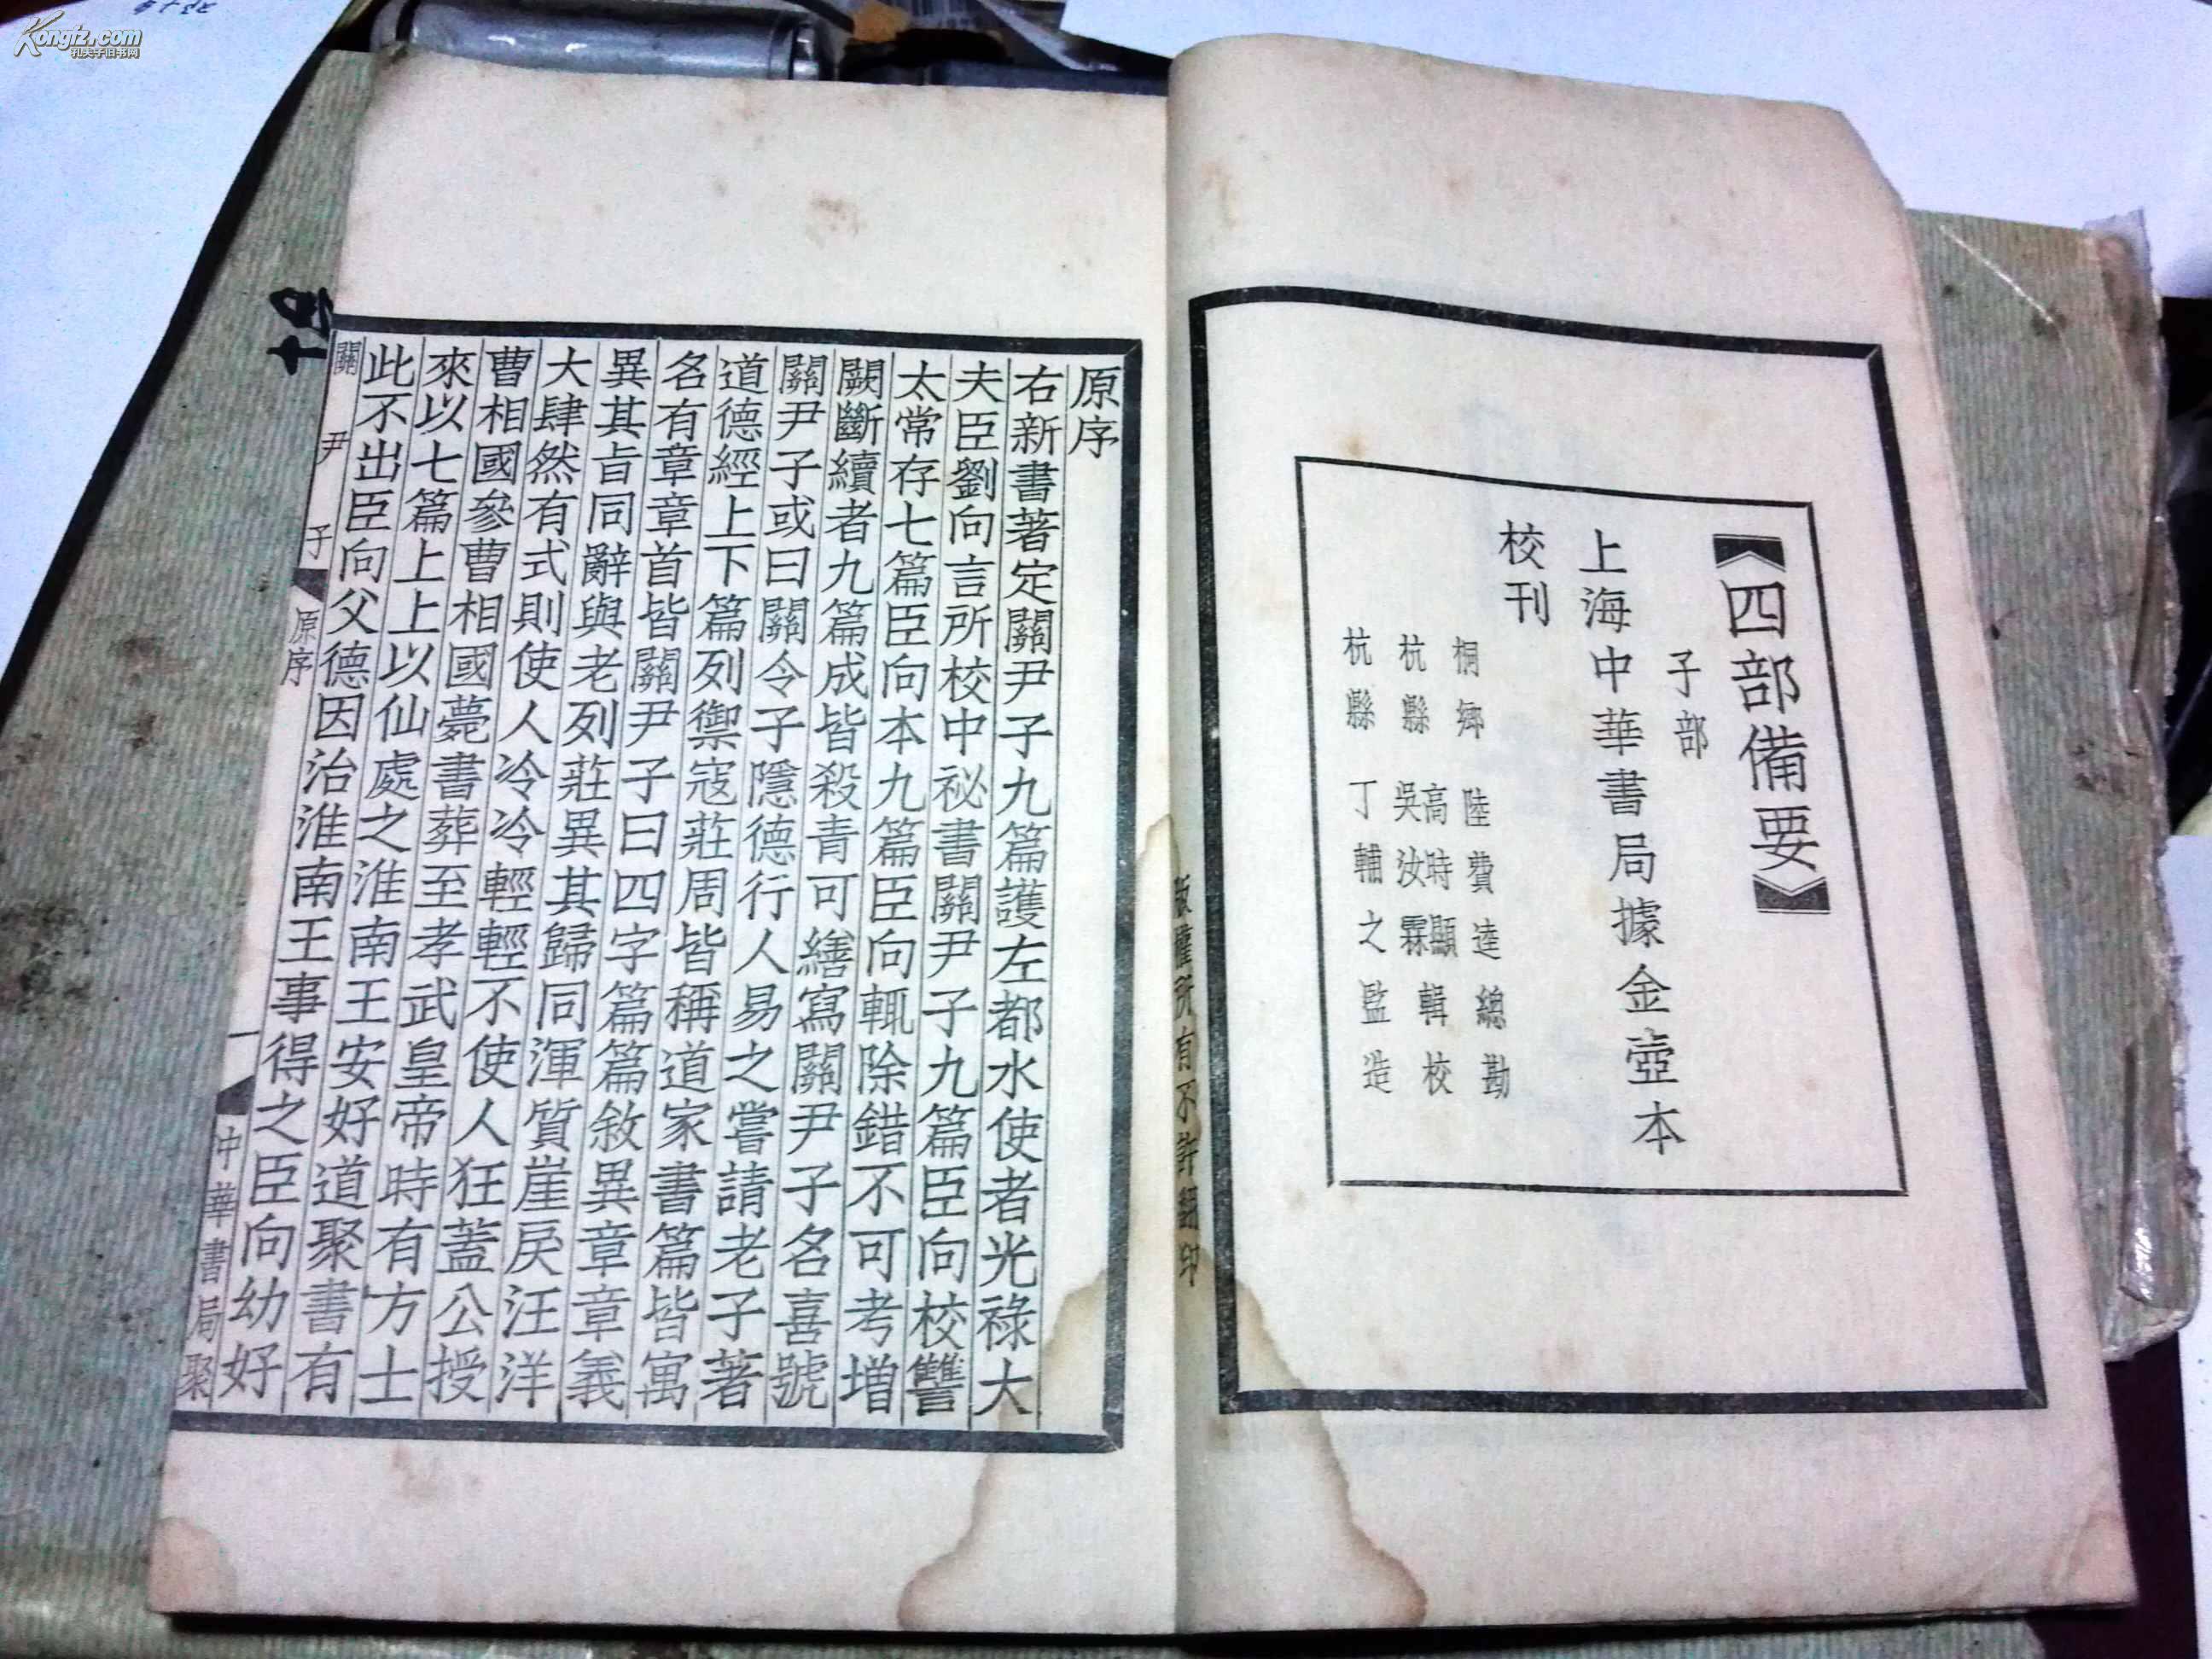 Kongfz.com
孔夫子旧书网
四部備要
子部
上海中華書局據金壺本
校刊
桐鄉 陸費逵總勘
杭縣 高時顯輯校
吳汝霖
杭縣 丁輔之監造
版權所有不許翻印
原序
右新書著定關尹子九篇護左都水使者光祿大
夫臣劉向言所校中祕書關尹子九篇臣向校讐
太常存七篇臣向本九篇臣向輒除錯不可考增
闕斷續者九篇成皆殺青可繕寫關尹子名喜號
關尹子或曰關令子隱德行人易之嘗請老子著
道德經上下篇列禦寇莊周皆稱道家書篇皆寓
名有章章首皆關尹子曰四字篇篇敘異章章義
異其旨同辭與老列莊異其歸同渾質崖戾汪洋
大肆然有式則使人冷冷輕輕不使人狂蓋公授
曹相國參曹相國薨書葬至孝武皇帝時有方士
來以七篇上上以仙處之淮南王安好道聚書有
此不出臣向父德因治淮南王事得之臣向幼好
關尹子 原序 一 中華書局聚